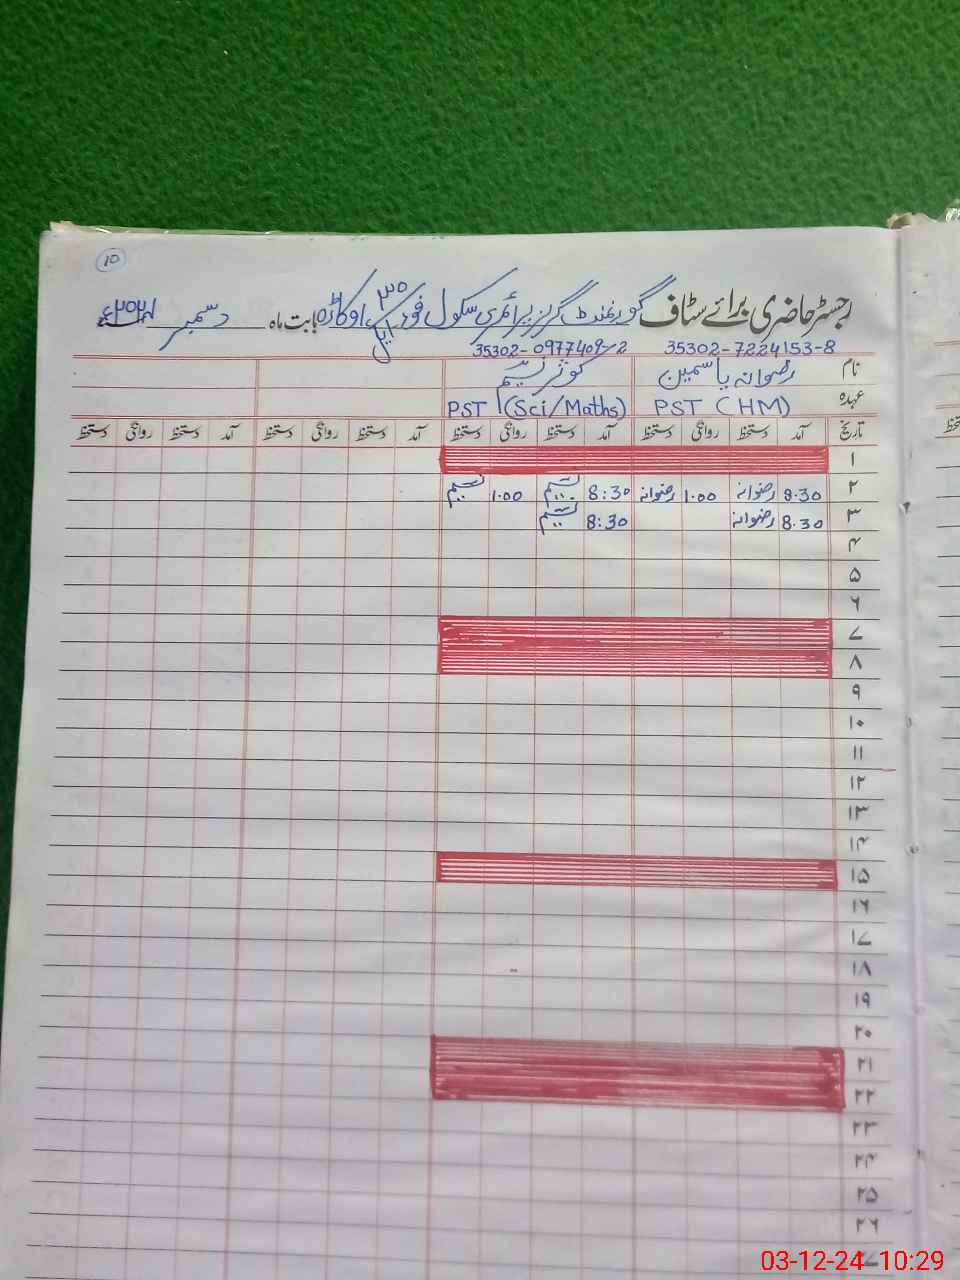 ۱۰
رجسٹر حاضری برائے سٹاف گورنمنٹ گرلز پرائمری سکول فور ایل ۳۰ اوکاڑہ بابت ماہ دسمبر ۲۰۲۴ء
35302-7224153-8 35302-0977409-2
نام رضوانہ یاسمین کوثر نسیم
عہدہ PST (HM) PST (Sci/Maths)
تاریخ آمد دستخط روانگی دستخط آمد دستخط روانگی دستخط آمد دستخط روانگی دستخط آمد دستخط روانگی دستخط
۱
۲ 8.30 رضوانہ 1.00 رضوانہ 8:30 نسیم 1.00 نسیم
۳ 8.30 رضوانہ 8:30 نسیم
۴
۵
۶
۷
۸
۹
۱۰
۱۱
۱۲
۱۳
۱۴
۱۵
۱۶
۱۷
۱۸
۱۹
۲۰
۲۱
۲۲
۲۳
۲۴
۲۵
۲۶
03-12-24 10:29